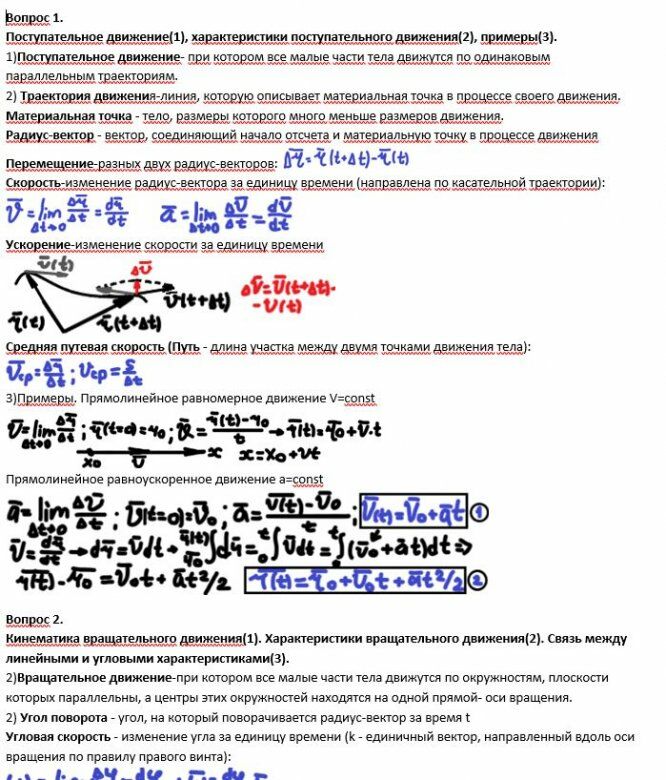 Вопрос 1.
Поступательное движение(1), характеристики поступательного движения(2), примеры(3).
1)Поступательное движение- при котором все малые части тела движутся по одинаковым
параллельным траекториям.
2) Траектория движения-линия, которую описывает материальная точка в процессе своего движения.
Материальная точка - тело, размеры которого много меньше размеров движения.
Радиус-вектор - вектор, соединяющий начало отсчета и материальную точку в процессе движения
Перемещение-разных двух радиус-векторов: Δr̅ = r̅(t+Δt)-r̅(t)
Скорость-изменение радиус-вектора за единицу времени (направлена по касательной траектории):
v̅ = lim Δt→0 Δr̅/Δt = dr̅/dt a̅ = lim Δt→0 Δv̅/Δt = dv̅/dt
Ускорение-изменение скорости за единицу времени
v̅(t) Δv̅ v̅(t+Δt) r̅(t) r̅(t+Δt)
Δv̅=v̅(t+Δt)-
-v(t)
Средняя путевая скорость (Путь - длина участка между двумя точками движения тела):
v̅ср = Δr̅/Δt ; vср = S/Δt
3)Примеры. Прямолинейное равномерное движение V=const
v̅=lim Δt→0 Δr̅/Δt ; r̅(t=0)=r₀ ; v̅ = (r̅(t)-r₀)/t → r̅(t)=r̅₀+v̅·t
x₀ v̅ x x=x₀+vt
Прямолинейное равноускоренное движение a=const
a̅ = lim Δt→0 Δv̅/Δt ; v̅(t=0)=v̅₀ ; a̅ = (v̅(t)-v̅₀)/t ; v̅(t)=v̅₀+a̅t 1
v̅ = dr̅/dt → dr̅=v̅dt → r̅(t) r̅₀ ∫dr̅ = ₀∫ᵗv̅dt = ₀∫ᵗ(v̅₀+a̅t)dt ⇒
r̅(t)-r̅₀ = v̅₀t + a̅t²/2 r̅(t)=r̅₀+v̅₀t+a̅t²/2 2
Вопрос 2.
Кинематика вращательного движения(1). Характеристики вращательного движения(2). Связь между
линейными и угловыми характеристиками(3).
2)Вращательное движение-при котором все малые части тела движутся по окружностям, плоскости
которых параллельны, а центры этих окружностей находятся на одной прямой- оси вращения.
2) Угол поворота - угол, на который поворачивается радиус-вектор за время t
Угловая скорость - изменение угла за единицу времени (k - единичный вектор, направленный вдоль оси
вращения по правилу правого винта):